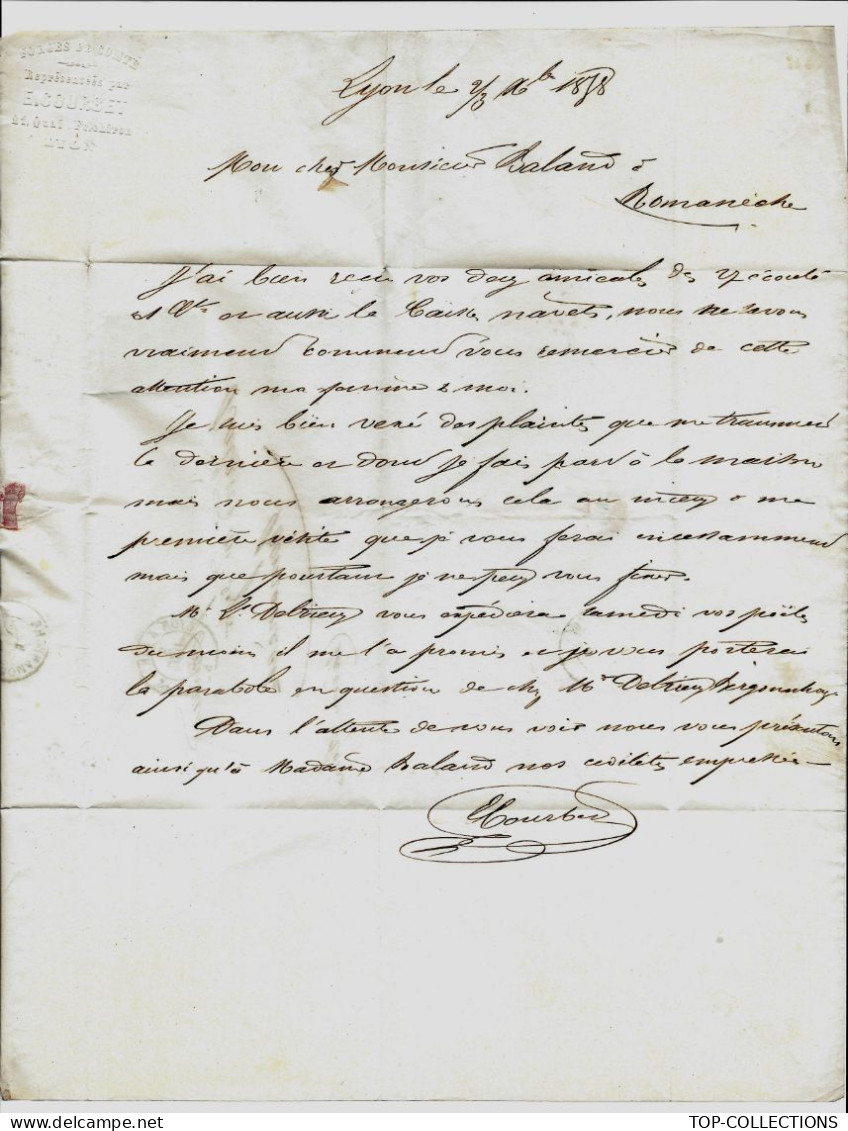 FORGES DE COMTÉ
Représentées par
E. COURBET
Quai
LYON
Lyon le 2/3 Xbre 1858
Mon cher Monsieur Baland à
Romanèche
J'ai bien recu vos deux amicales des 27 écoulé
et aussi la Caisse navets, nous ne savons
vraiment comment vous remercier de cette
attention ma femme & moi.
Je suis bien vexé des plaintes que me transmet
la dernière et dont je fais part à la maison
mais nous arrangerons cela au mieux à ma
première visite que je vous ferai incessamment
mais que pourtant je ne peux vous fixer.
Mr Vr Delrieu vous expédiera samedi vos poëles
du moins il me l'a promis et je vous porterai
la parabole en question de chez Mr Delrieu
Dans l'attente de vous voir nous vous présentons
ainsi qu'à Madame Baland nos civilités empressées
ECourbet
TOP-COLLECTIONS